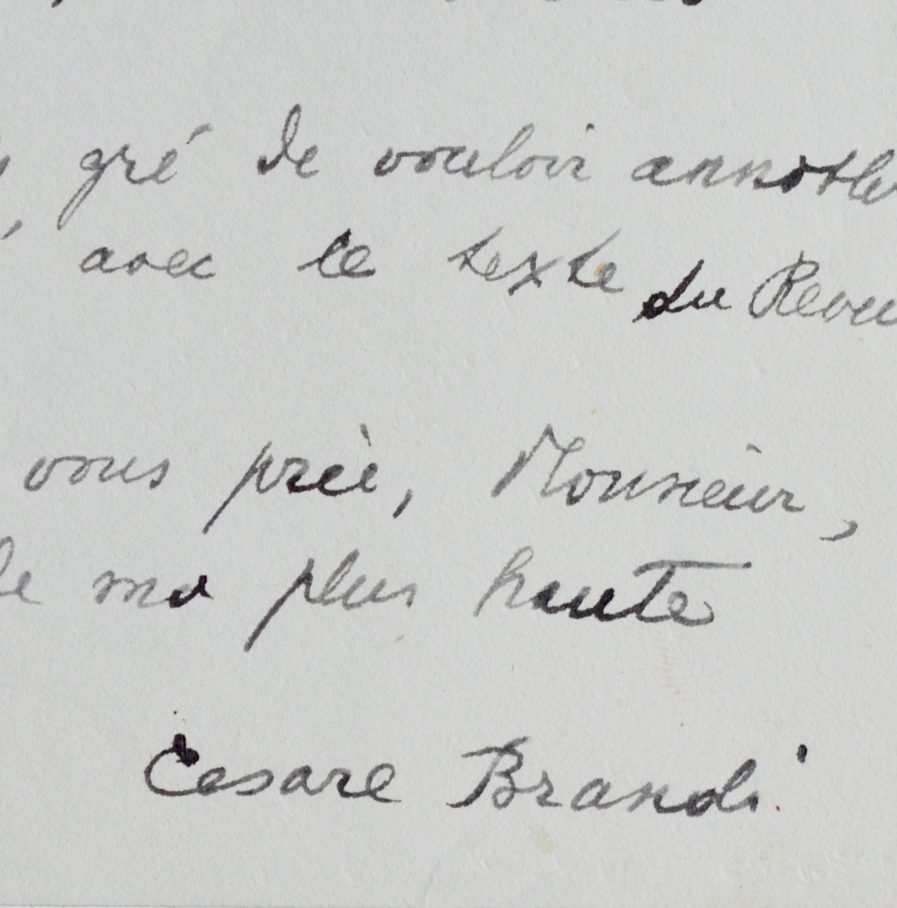 gré de vouloir annoter
avec le texte du Revu
vous prie, Monsieur,
de ma plus haute
Cesare Brandi